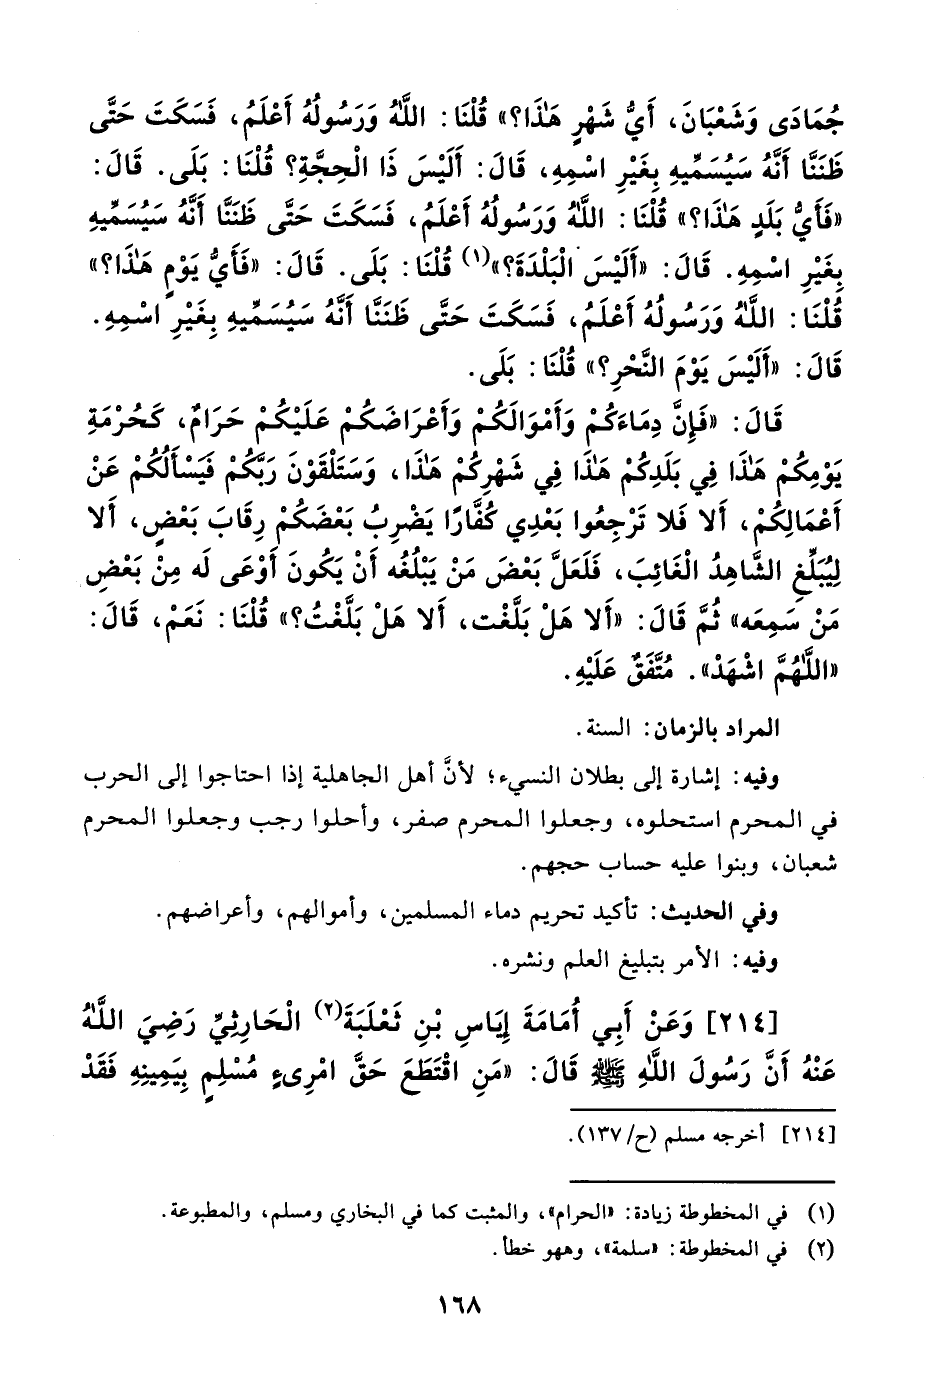 جُمَادَى وَشَعْبَانَ، أَيُّ شَهْرٍ هَٰذَا؟» قُلْنَا: اللَّهُ وَرَسُولُهُ أَعْلَمُ، فَسَكَتَ حَتَّى
ظَنَنَّا أَنَّهُ سَيُسَمِّيهِ بِغَيْرِ اسْمِهِ، قَالَ: أَلَيْسَ ذَا الْحِجَّةِ؟ قُلْنَا: بَلَى. قَالَ:
«فَأَيُّ بَلَدٍ هَٰذَا؟» قُلْنَا: اللَّهُ وَرَسُولُهُ أَعْلَمُ، فَسَكَتَ حَتَّى ظَنَنَّا أَنَّهُ سَيُسَمِّيهِ
بِغَيْرِ اسْمِهِ. قَالَ: «أَلَيْسَ الْبَلْدَةَ؟»(١) قُلْنَا: بَلَى. قَالَ: «فَأَيُّ يَوْمٍ هَٰذَا؟»
قُلْنَا: اللَّهُ وَرَسُولُهُ أَعْلَمُ، فَسَكَتَ حَتَّى ظَنَنَّا أَنَّهُ سَيُسَمِّيهِ بِغَيْرِ اسْمِهِ.
قَالَ: «أَلَيْسَ يَوْمَ النَّحْرِ؟» قُلْنَا: بَلَى.
قَالَ: «فَإِنَّ دِمَاءَكُمْ وَأَمْوَالَكُمْ وَأَعْرَاضَكُمْ عَلَيْكُمْ حَرَامٌ، كَحُرْمَةِ
يَوْمِكُمْ هَٰذَا فِي بَلَدِكُمْ هَٰذَا فِي شَهْرِكُمْ هَٰذَا، وَسَتَلْقَوْنَ رَبَّكُمْ فَيَسْأَلُكُمْ عَنْ
أَعْمَالِكُمْ، أَلا فَلا تَرْجِعُوا بَعْدِي كُفَّارًا يَضْرِبُ بَعْضُكُمْ رِقَابَ بَعْضٍ، أَلا
لِيُبَلِّغِ الشَّاهِدُ الْغَائِبَ، فَلَعَلَّ بَعْضَ مَنْ يَبْلُغُه أَنْ يَكُونَ أَوْعَى لَه مِنْ بَعْضِ
مَنْ سَمِعَه» ثُمَّ قَالَ: «أَلا هَلْ بَلَّغْت، أَلا هَلْ بَلَّغْتُ؟» قُلْنَا: نَعَمْ، قَالَ:
«اللَّهُمَّ اشْهَدْ». مُتَّفَقٌ عَلَيْهِ.
المراد بالزمان: السنة.
وفيه: إشارة إلى بطلان النسيء؛ لأنَّ أهل الجاهلية إذا احتاجوا إلى الحرب
في المحرم استحلوه، وجعلوا المحرم صفر، وأحلوا رجب وجعلوا المحرم
شعبان، وبنوا عليه حساب حجهم.
وفي الحديث: تأكيد تحريم دماء المسلمين، وأموالهم، وأعراضهم.
وفيه: الأمر بتبليغ العلم ونشره.
[٢١٤] وَعَنْ أَبِي أُمَامَةَ إِيَاسِ بْنِ ثَعْلَبَةَ(٢) الْحَارِثِيِّ رَضِيَ اللَّهُ
عَنْهُ أَنَّ رَسُولَ اللَّهِ ﷺ قَالَ: «مَنِ اقْتَطَعَ حَقَّ امْرِىءٍ مُسْلِمٍ بِيَمِينِهِ فَقَدْ
[٢١٤] أخرجه مسلم (ح/١٣٧).
(١) في المخطوطة زيادة: «الحرام»، والمثبت كما في البخاري ومسلم، والمطبوعة.
(٢) في المخطوطة: «سلمة»، وههو خطأ.
١٦٨